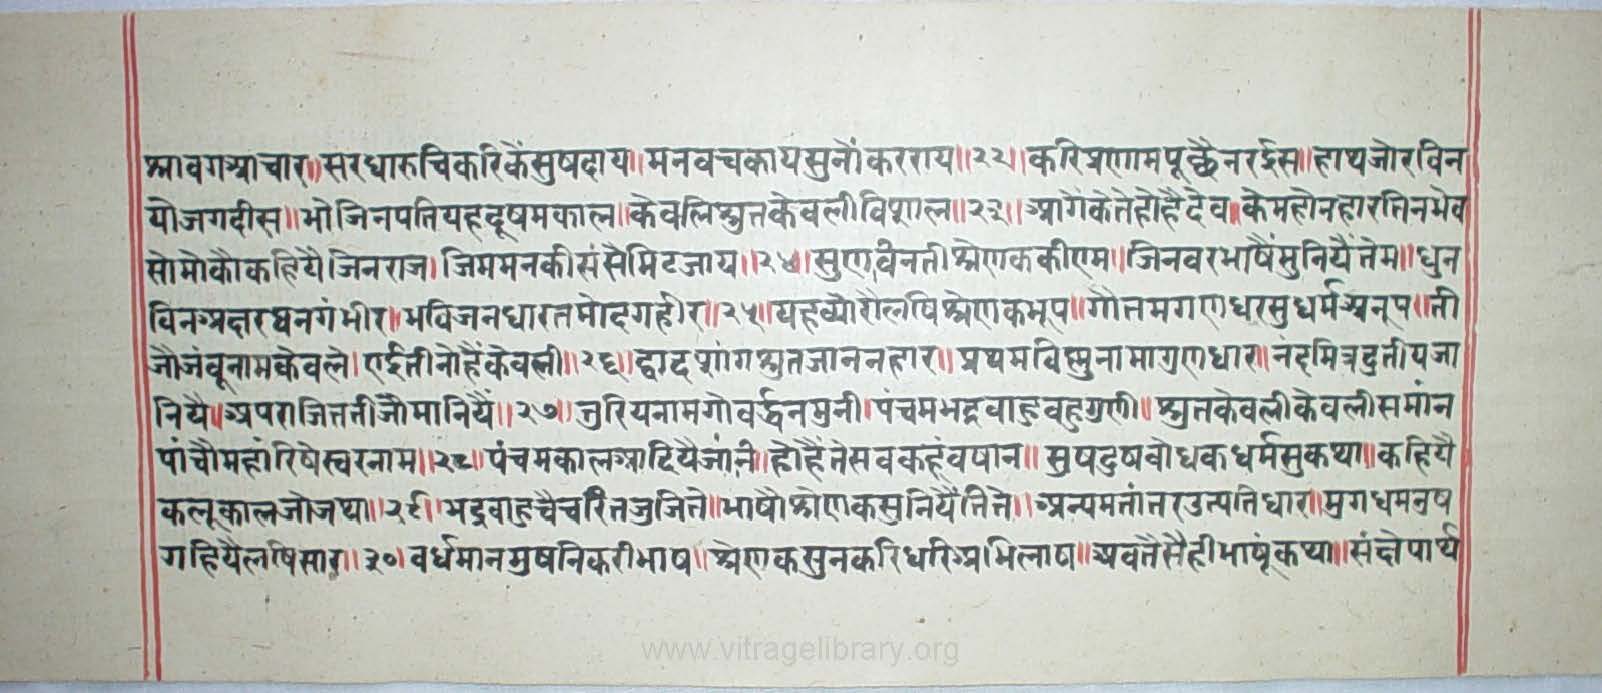 श्रावगआचार॥सरधारुचिकरिकैंसुषदाय॥मनवचकायसुनौंकरराय॥२२॥करिप्रणामपूछैनरईस॥हाथजोरविन
योजगदीस॥भोजिनपतियहदूषमकाल॥केवलिश्रुतकेवलीविशाल॥२३॥आगेंकेतेहोहैदेव॥केमहोनहारतिनभेव
सोमोकौकहियैजिनराज।जिममनकीसंसैमिटजाय॥२४॥सुणवीनतीश्रेणककीएम॥जिनवरभाषैंसुनियैंतेम॥धुन
विनअक्षरघनगंभीर॥भविजनधारतमोदगहीर॥२५॥यहब्योरौलषिश्रेणकभूप॥गौतमगणधरसुधर्मअनूप॥ती
जौजंबूनामकेवले।एईतीनोहैंकेवली॥२६॥द्वादशांगश्रुतजाननहार॥प्रथमविष्णुनामागुणधार॥नंदमित्रदुतीयजा
नियै॥अपराजिततीजौमानियैं॥२७॥तुरियनामगोवर्द्धनमुनी।पंचमभद्रवाहुवहुगुणी॥श्रुतकेवलीकेवलीसमांन
पांचौमहांरिषेस्वरनाम॥२८॥पंचमकालआदियैजांनी॥होहैंतेसवकहंवषान॥सुषदुषवोधकधर्मसुकथा॥कहियै
कलूकालजोजथा॥२९॥भद्रवाहुचैचरितजुजिते॥भाषौश्रेणकसुनियैंतिते॥अन्यमतांतरउत्पतिधार॥मुगधमनुष
गहियैलषिसार॥३०॥वर्धमानमुषनिकरीभाष॥श्रेणकसुनकरिधरिअभिलाष॥अवतैसैहीभाषूंकथा॥संक्षेपार्थ
www.vitragelibrary.org